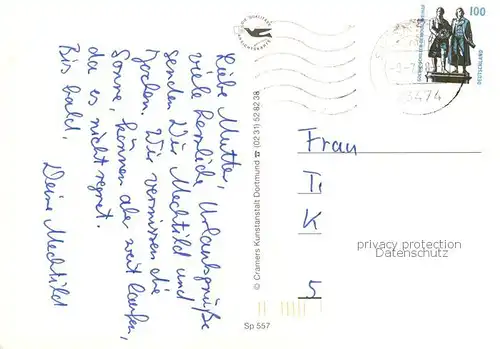 Liebe Mutter,
viele herzliche Urlaubsgrüße
senden Dir Mechtild und
Jochen. Wir vermissen die
Sonne, können aber weit laufen,
da es nicht regnet.
Bis bald,
Deine Mechtild
© Cramers Kunstanstalt Dortmund ☎ (02 31) 52 82 38
Sp 557
100
DEUTSCHLAND
3474
Frau
T
K
5
privacy protection
Datenschutz